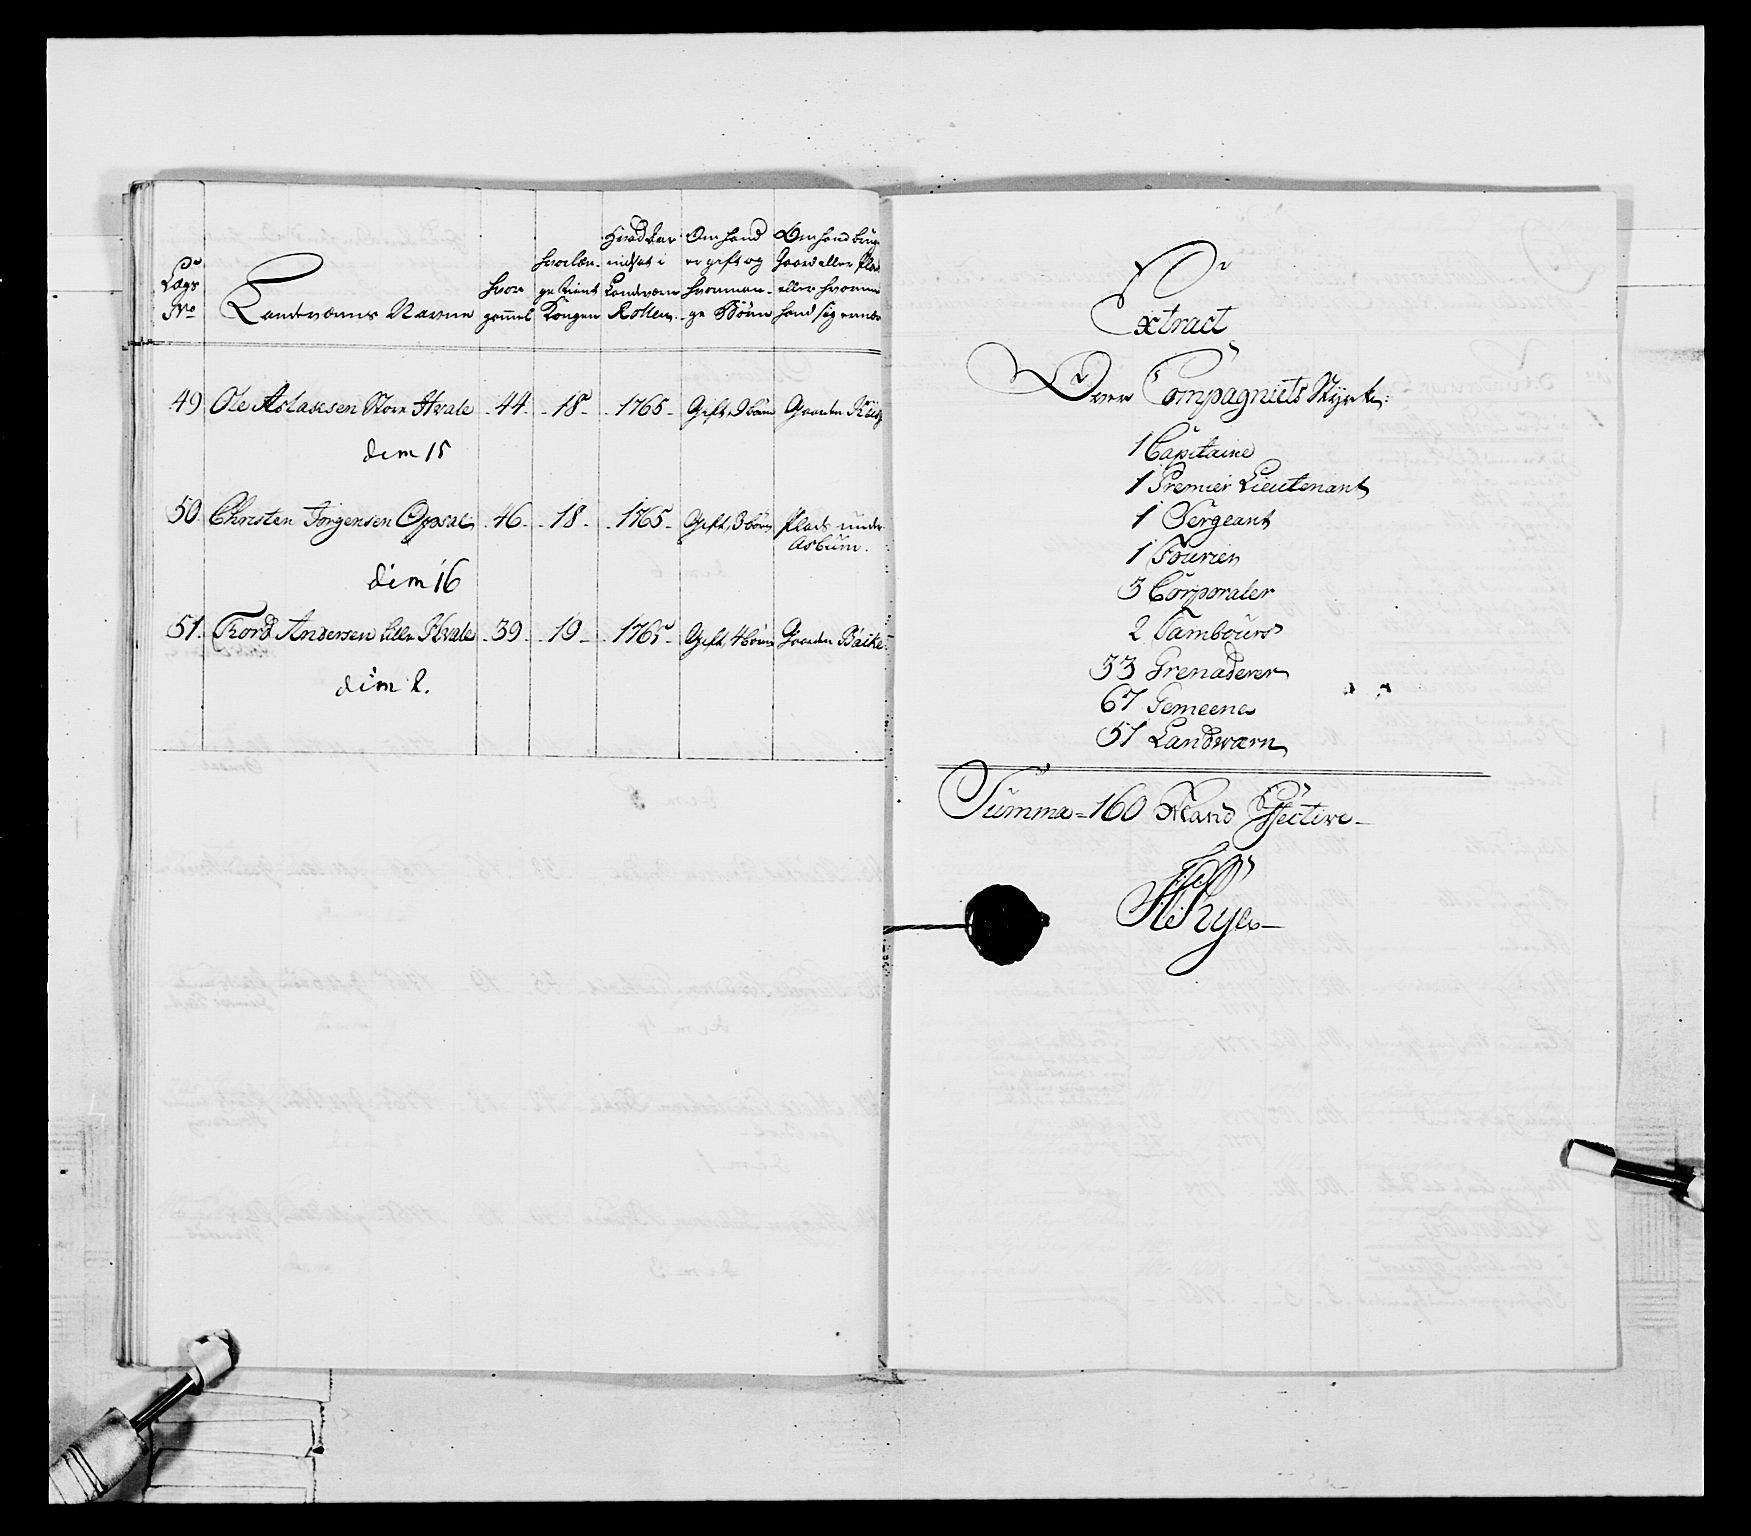 Lægs No
Landværns Navne
hvor gammel
hvor længe tient Kongen
Hvad Aar indsat i Landværn Rollen
Om hand er gift og hvormange Börn
Om hand bruger Gaard eller Plads eller hvormed hand sig ernærer
49 Ole Aslaksen Store Hvale 44 18 1765 Gift Gaarden
dim 15
50 Christen Jörgensen Opsal 46 18 1765 Gift, 3 börn Plads under
Asbum
dim 16
51. Tord Andersen Lille Hvale 39 19 1765 Gift, 4 börn Gaarden
dim 2.
Extract
Over Compagniets Styrke:
1 Capitaine
1 Premier Lieutenant
1 Sergeant
1 Fourier
3 Corporaler
2 Tambours
33 Grenaderer
67 Gemeene
51 Landværn
Summa = 160 Mand Effective
HRye